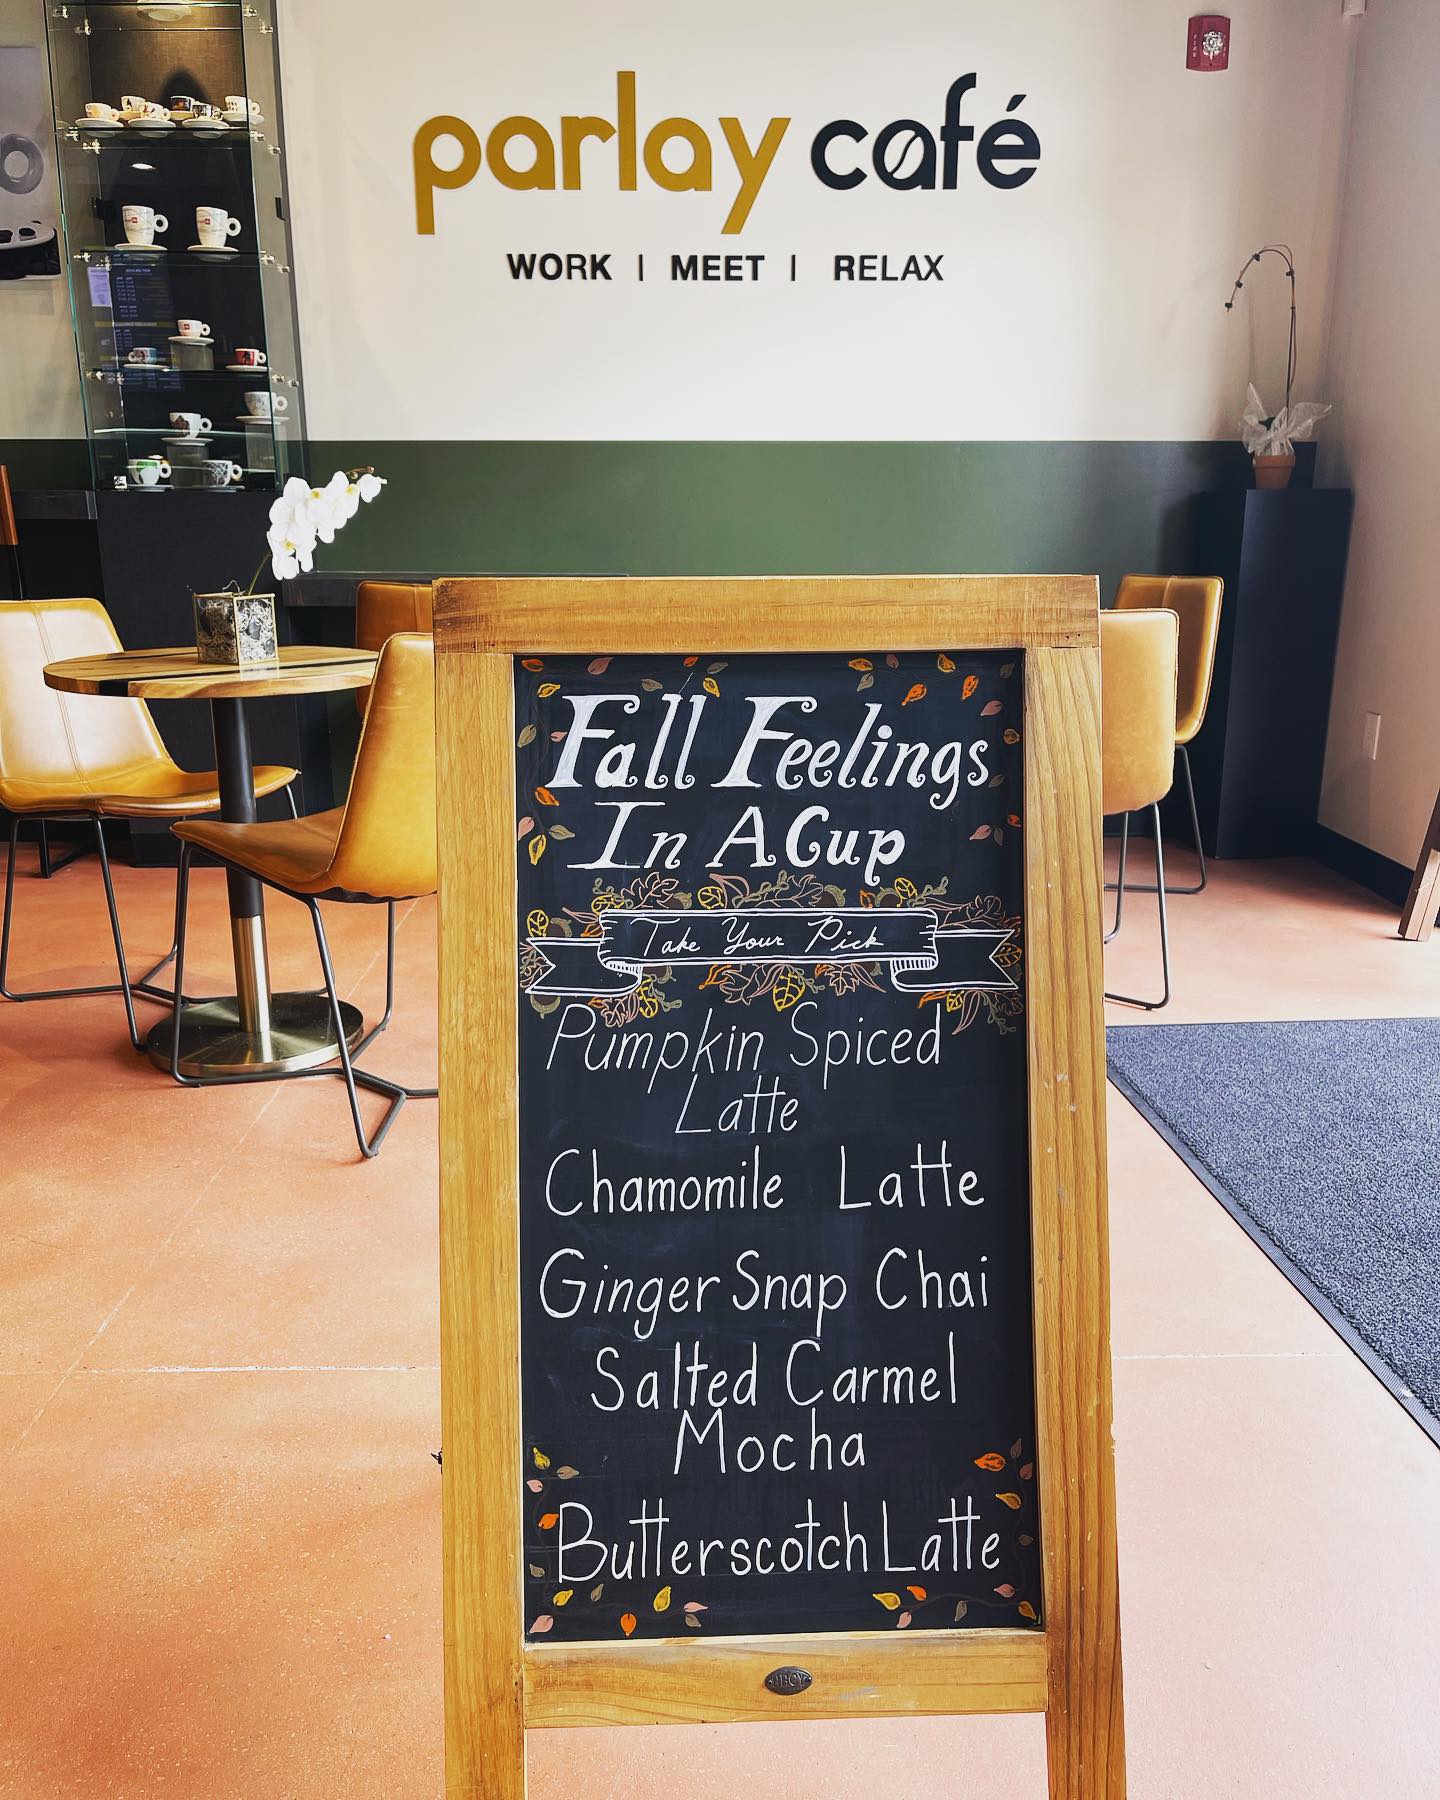 parlay café
WORK | MEET | RELAX
Fall Feelings
In A Cup
Take Your Pick
Pumpkin Spiced
Latte
Chamomile Latte
Ginger Snap Chai
Salted Carmel
Mocha
Butterscotch Latte